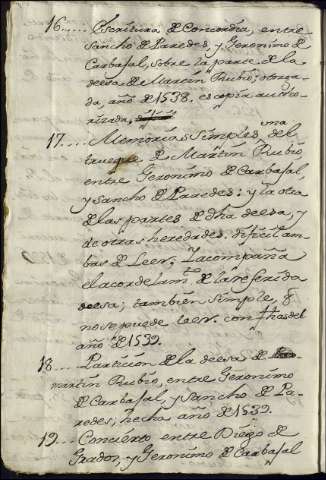 16..... Escritura de Concordia, entre
Sancho de Paredes, y Geronimo de
Carbajal, sobre la parte de la
deesa de Martin Rubio; otorga-
da, año de 1538. es copia auto-
rizada,
17.... Memorias simples, una del
trueque de Martin Rubio,
entre Geronimo de Carbajal,
y Sancho de Paredes; y la otra
de las partes de dha deesa, y
de otras heredades. dificil am-
bas de Leer. La compaña
el acordelamto. de la referida
deesa; tambien simple, q
no se puede leer. con fhas del
año de 1539.
18... Particion de la deesa de
martin Rubio, entre Geronimo
de Carbajal, y Sancho de Pa-
redes; hecha año de 1539.
19... Concierto entre Diego de
Grado, y Geronimo de Carbajal